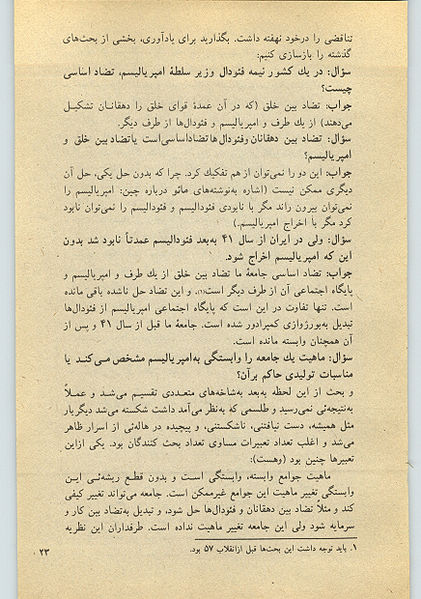 تناقضی را درخود نهفته داشت. بگذارید برای یادآوری، بخشی از بحث‌های
گذشته را بازسازی کنیم:
سؤال: در یك کشور نیمه فئودال وزیر سلطهٔ امپریالیسم، تضاد اساسی
چیست؟
جواب: تضاد بین خلق (که در آن عمدهٔ قوای خلق را دهقانان تشکیل
می‌دهند) از یك طرف و امپریالیسم و فئودال‌ها از طرف دیگر.
سؤال: تضاد بین دهقانان وفئودال‌ها تضاداساسی‌است یاتضادبین خلق و
امپریالیسم؟
جواب: این دو را نمی‌توان از هم تفکیك کرد. چرا که بدون حل یکی، حل آن
دیگری ممکن نیست (اشاره به‌نوشته‌های مائو درباره چین: امپریالیسم را
نمی‌توان بیرون راند مگر با نابودی فئودالیسم و فئودالیسم را نمی‌توان نابود
کرد مگر با اخراج امپریالیسم.)
سؤال: ولی در ایران از سال ۴۱ به‌بعد فئودالیسم عمدتاً نابود شد بدون
این که امپریالیسم اخراج شود.
جواب: تضاد اساسی جامعهٔ ما تضاد بین خلق از یك طرف و امپریالیسم و
پایگاه اجتماعی آن از طرف دیگر است(۱). و این تضاد حل ناشده باقی مانده
است. تنها تفاوت در این است که پایگاه اجتماعی امپریالیسم از فئودال‌ها
تبدیل به‌بورژوازی کمپرادور شده است. جامعهٔ ما قبل از سال ۴۱ و پس از
آن همچنان وابسته مانده است.
سؤال: ماهیت یك جامعه را وابستگی به‌امپریالیسم مشخص می‌کند یا
مناسبات تولیدی حاکم برآن؟
و بحث از این لحظه به‌بعد به‌شاخه‌های متعددی تقسیم می‌شد و عملاً
به‌نتیجه‌ئی نمی‌رسید و طلسمی که به‌نظر می‌آمد داشت شکسته می‌شد دیگربار
مثل همیشه، دست نیافتنی، ناشکستنی، و پیچیده در هاله‌ئی از اسرار ظاهر
می‌شد و اغلب تعداد تعبیرات مساوی تعداد بحث کنندگان بود. یکی ازاین
تعبیرها چنین بود (وهست):
ماهیت جوامع وابسته، وابستگی است و بدون قطع ریشه‌ئی این
وابستگی تغییر ماهیت این جوامع غیرممکن است. جامعه می‌تواند تغییر کیفی
کند و مثلاً تضاد بین دهقانان و فئودال‌ها حل شود، و تبدیل به‌تضاد بین کار و
سرمایه شود ولی این جامعه تغییر ماهیت نداده است. طرفداران این نظریه
۱. باید توجه داشت این بحث‌ها قبل ازانقلاب ۵۷ بود.
۲۳